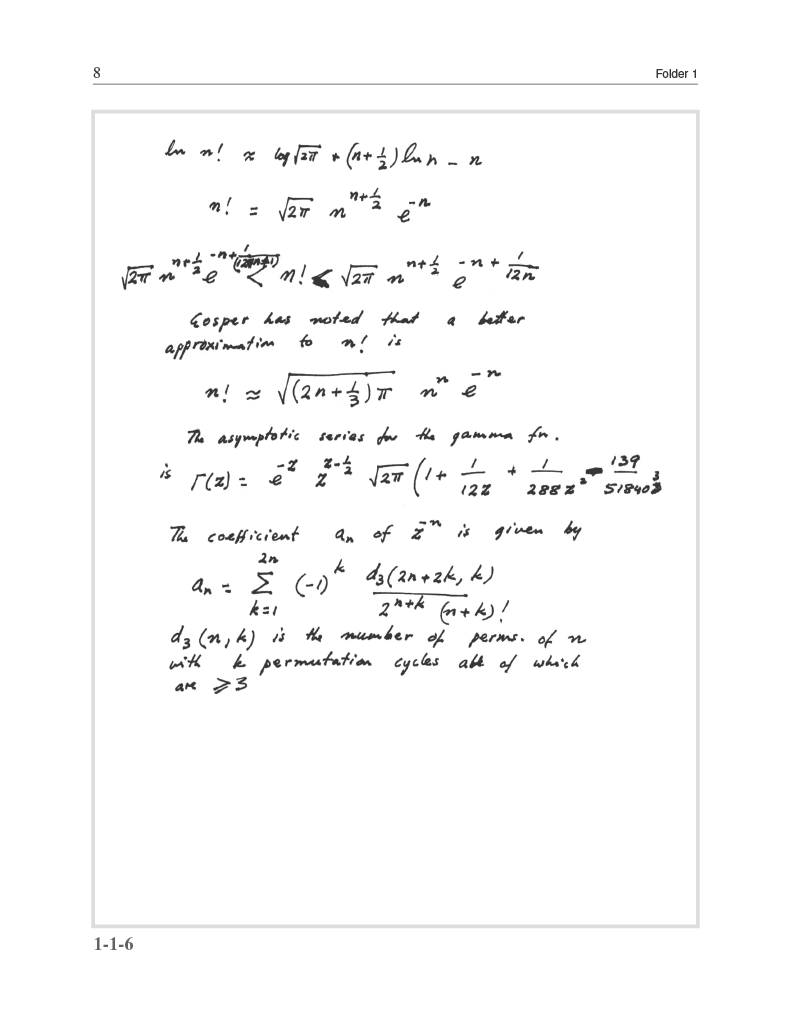 8 Folder 1
ln n! ≈ log √2π + (n+½) ln n − n
n! = √2π n^(n+½) e^(−n)
√2π n^(n+½) e^(−n+1/(12n+1)) < n! < √2π n^(n+½) e^(−n+1/(12n))
Gosper has noted that a better
approximation to n! is
n! ≈ √((2n+⅓)π) n^n e^(−n)
The asymptotic series for the gamma fn.
is Γ(z) = e^(−z) z^(z−½) √2π (1 + 1/(12z) + 1/(288z²) − 139/(51840³)
The coefficient a_n of z^(−n) is given by
a_n = Σ_(k=1)^(2n) (−1)^k d₃(2n+2k, k) / (2^(n+k) (n+k)!)
d₃(n, k) is the number of perms. of n
with k permutation cycles all of which
are ⩾3
1-1-6